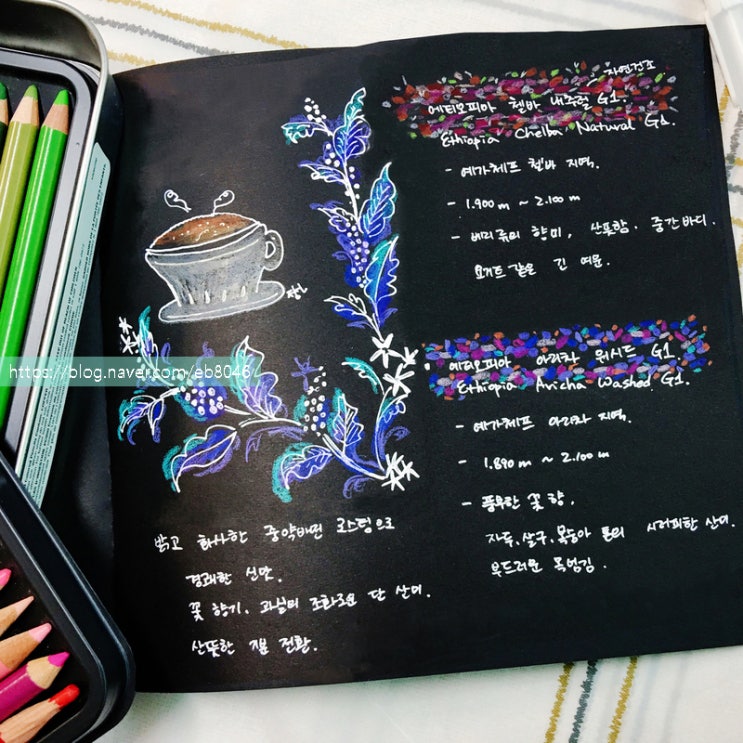 자연건조
에티오피아 첼바 내추럴 G1.
Ethiopia Chelba Natural G1.
- 예가체프 첼바 지역.
- 1.900m ~ 2.100m
- 베리류의 향미, 산뜻함. 중간바디.
요거트 같은 긴 여운.
에티오피아 아리차 워시드 G1
Ethiopia Aricha Washed G1.
- 예가체프 아리차 지역.
- 1.890m ~ 2.100m
- 풍부한 꽃 향.
자두, 살구, 복숭아 톤의 시러피한 산미.
부드러운 목넘김.
밝고 화사한 중약배전 로스팅으로
경쾌한 신맛.
꽃 향기, 과실의 조화로운 단 산미.
산뜻한 기분 전환.
https://blog.naver.com/eb8046